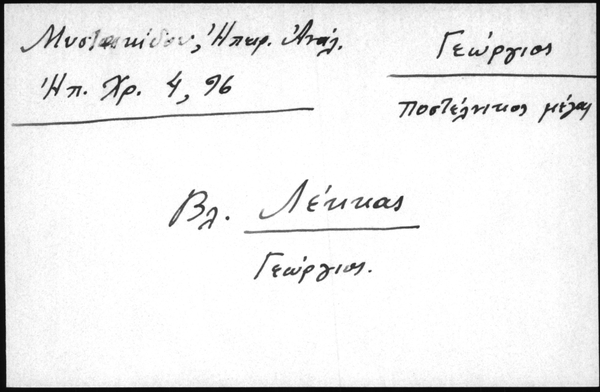 Μυστακίδου, Ἠπειρ. Ἀνάλ.
Ἠπ. Χρ. 4, 96
Γεώργιος
ποστέλνικος μέγας
Βλ. Λέκκας
Γεώργιος.